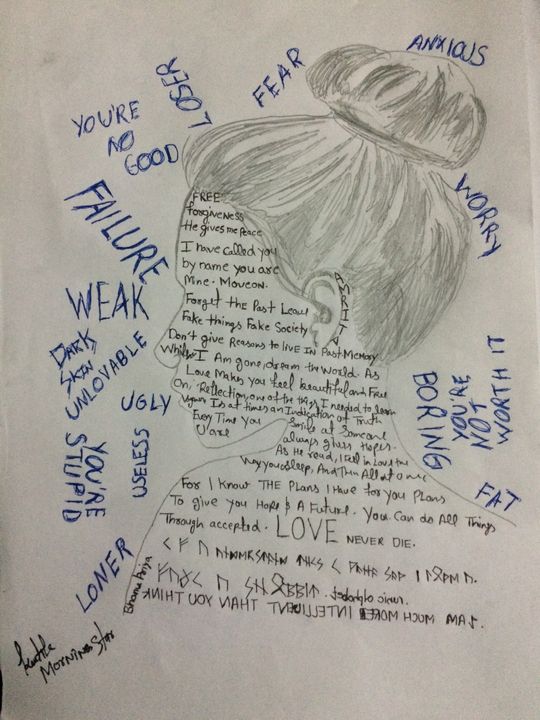 ANXIOUS
FEAR
LOSER
YOU'RE
NO
GOOD
WORRY
FAILURE
WEAK
DARK
SKIN
UNLOVABLE
UGLY
USELESS
YOU'RE
STUPID
LONER
YOU'RE
NOT
WORTH IT
BORING
FAT
FREE
forgiveness
He gives me peace
I have called you
by name you are
Mine. Moveon.
Forget the Past Leave
Fake things Fake Society
Don't give Reasons to live In Past Memory
While I Am gone, dream the World. As
Love Makes you feel beautiful and Free
On, Reflection, one of the things I needed to learn
Is at times an Indication of Truth
Every Time you Smile at Someone
U are always gives Hopes.
As He read, I fell in Love the
Way you sleep, And Then All at once
For I know THE Plans I Have for you Plans
To give you Hope & A Future. You Can do All Things
Through accepted. LOVE NEVER DIE.
I AM MUCH MORE INTELLIGENT THAN YOU THINK
Bhanu Priya
MORNING Star